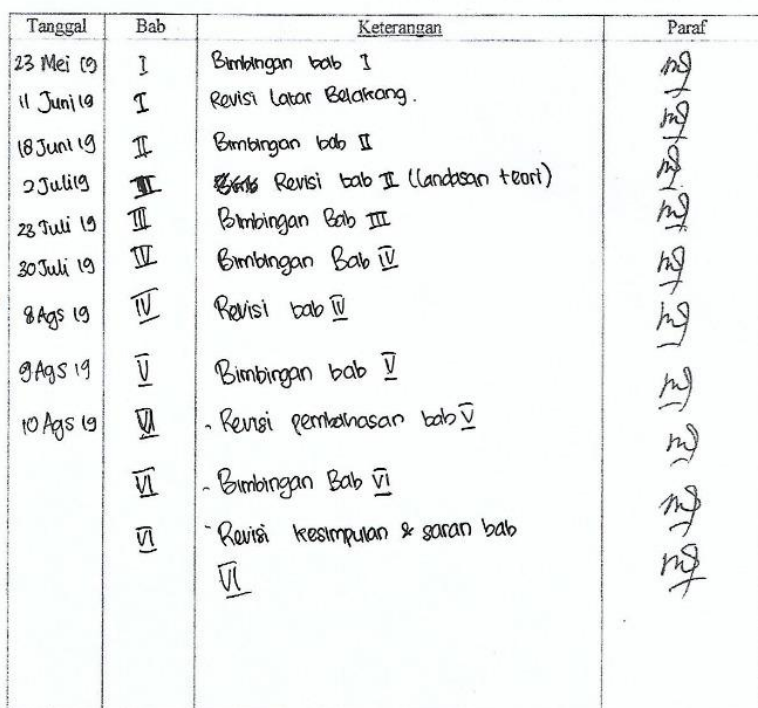 Tanggal Bab Keterangan Paraf
23 Mei 19 I Bimbingan bab I
11 Juni 19 I Revisi Latar Belakang.
18 Juni 19 II Bimbingan bab II
2 Juli 19 II Revisi bab II (landasan teori)
23 Juli 19 III Bimbingan Bab III
30 Juli 19 IV Bimbingan Bab IV
8 Ags 19 IV Revisi bab IV
9 Ags 19 V Bimbingan bab V
10 Ags 19 VI - Revisi pembahasan bab V
VI - Bimbingan Bab VI
VI - Revisi kesimpulan & saran bab
VI